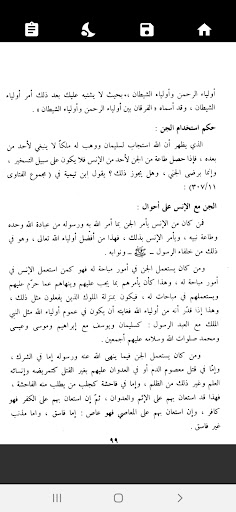 أولياء الرحمن وأولياء الشيطان ، بحيث لا يشتبه عليك بعد ذلك أمر أولياء
الشيطان ، وقد أسماه « الفرقان بين أولياء الرحمن وأولياء الشيطان » .
حكم استخدام الجن :
الذي يظهر أن الله استجاب لسليمان ووهب له ملكاً لا ينبغي لأحد من
بعده ، فإذا حصل طاعة من الجن لأحد من الإنس فلا يكون على سبيل التسخير ،
وإنما برضى الجني ، وهل يجوز ذلك ؟ يقول ابن تيمية في ( مجموع الفتاوى
٣٠٧/١١)
الجن مع الإنس على أحوال :
فمن كان من الإنس يأمر الجن بما أمر الله به ورسوله من عبادة الله وحده
وطاعة نبيه ، ويأمر الإنس بذلك ، فهذا من أفضل أولياء الله تعالى ، وهو في
ذلك من خلفاء الرسول – ﷺ – ونوابه .
ومن كان يستعمل الجن في أمور مباحة له فهو كمن استعمل الإنس في
أمور مباحة له ، وهذا كأن يأمرهم بما يجب عليهم وينهاهم عما حرّم عليهم
ويستعملهم في مباحات له ، فيكون بمنزلة الملوك الذين يفعلون مثل ذلك ،
وهذا إذا قدّر أنه من أولياء الله فغايته أن يكون في عموم أولياء الله مثل النبي
الملك مع العبد الرسول : كسليمان ويوسف مع إبراهيم وموسى وعيسى
ومحمد صلوات الله وسلامه عليهم أجمعين .
ومن كان يستعمل الجن فيما ينهى الله عنه ورسوله إما في الشرك ،
وإمّا في قتل معصوم الدم أو في العدوان عليهم بغير القتل كتمريضه وإنسائه
العلم وغير ذلك من الظلم ، وإما في فاحشة كجلب من يطلب منه الفاحشة ،
فهذا قد استعان بهم على الإثم والعدوان ، ثمّ إن استعان بهم على الكفر فهو
كافر ، وإن استعان بهم على المعاصي فهو عاص : إما فاسق ، وإما مذنب
غير فاسق .
٩٩